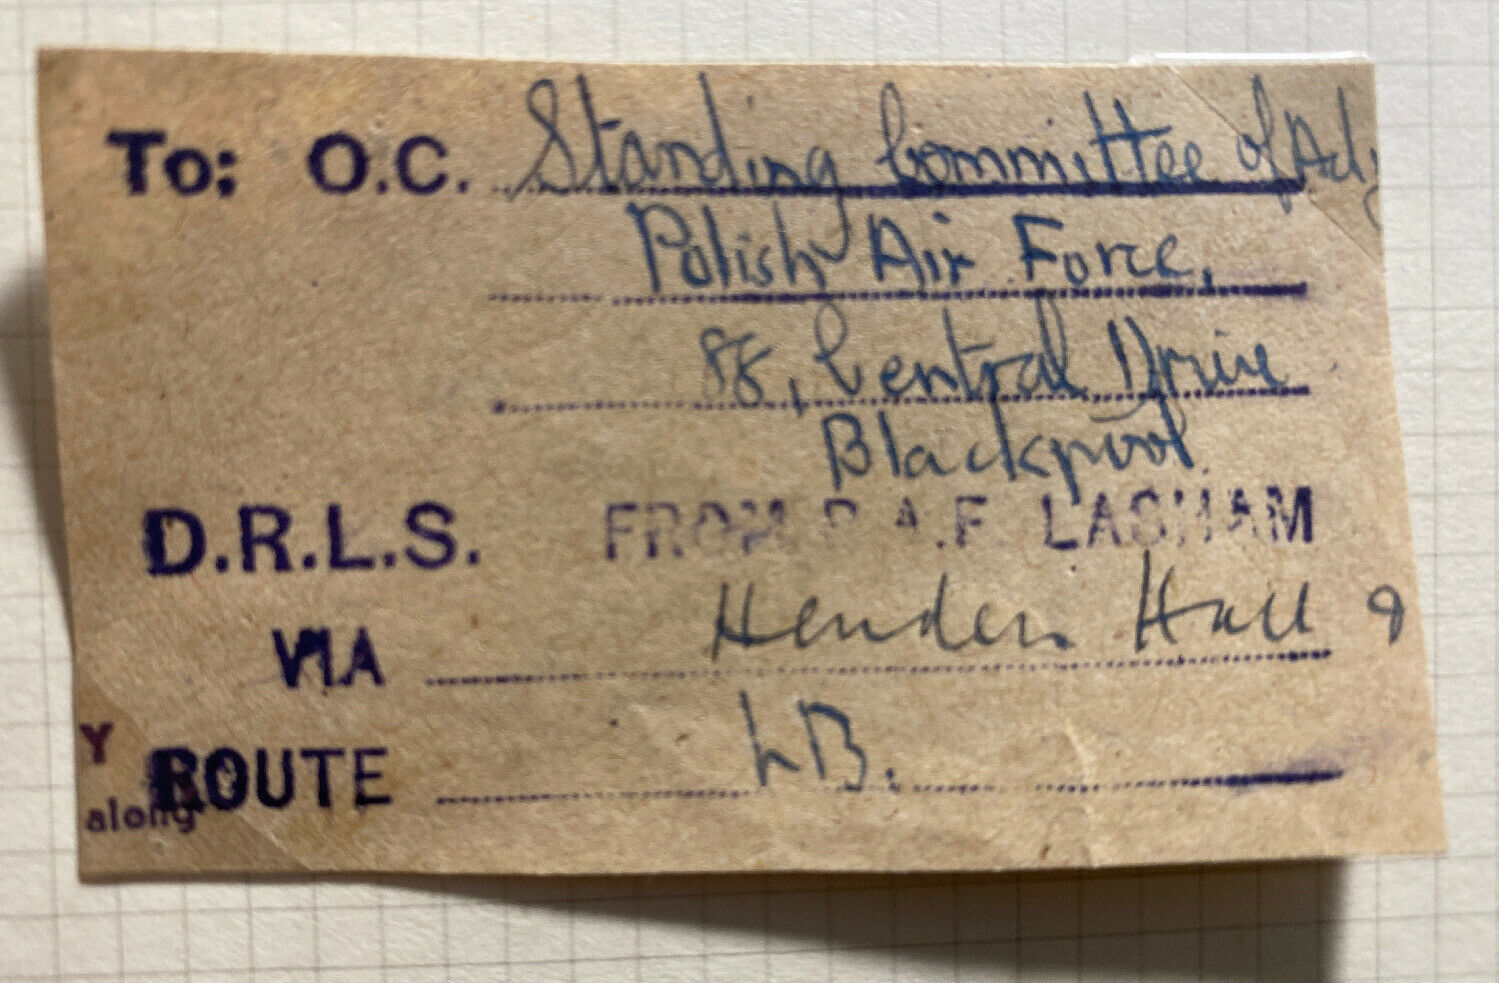 To: O.C. Standing Committee of Adj
Polish Air Force,
88, Central Drive
Blackpool.
D.R.L.S. FROM R.A.F LASHAM
VIA Henden Hall 9
Y
ROUTE LB.
along